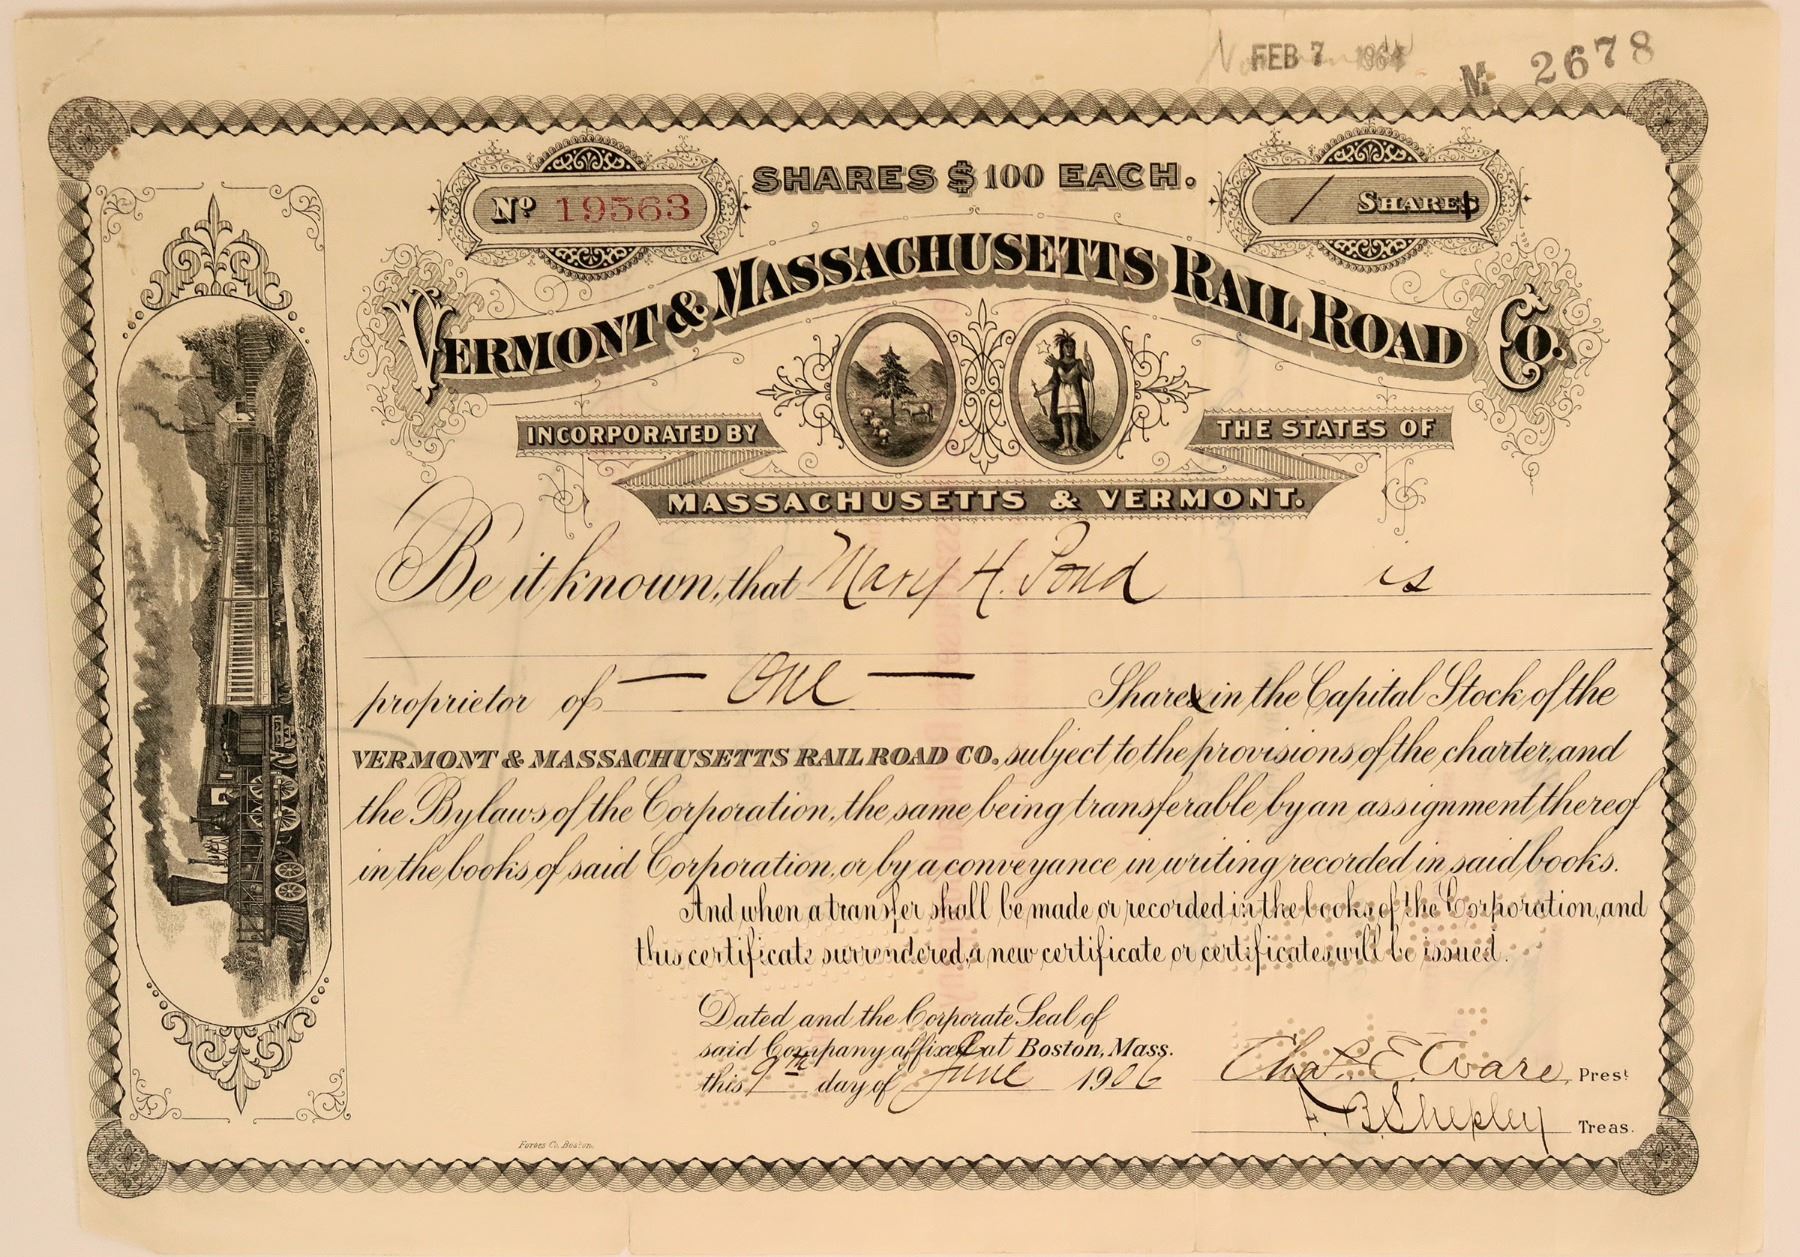 FEB 7 1964
No 2678
SHARES $100 EACH.
No 19563
1 SHARE
VERMONT & MASSACHUSETTS RAIL ROAD CO.
INCORPORATED BY THE STATES OF
MASSACHUSETTS & VERMONT.
Be it known, that Mary H. Pond is
proprietor of — One — Share in the Capital Stock of the
VERMONT & MASSACHUSETTS RAIL ROAD CO., subject to the provisions of the charter, and
the Bylaws of the Corporation, the same being transferable by an assignment thereof
in the books of said Corporation, or by a conveyance in writing recorded in said books.
And when a transfer shall be made or recorded in the books of the Corporation, and
this certificate surrendered, a new certificate or certificates will be issued.
Dated and the Corporate Seal of
said Company affixed at Boston, Mass.
this 9th day of June 1906
Chas. E. Ware, Prest
F. B. Shepley Treas.
Forbes Co. Boston.